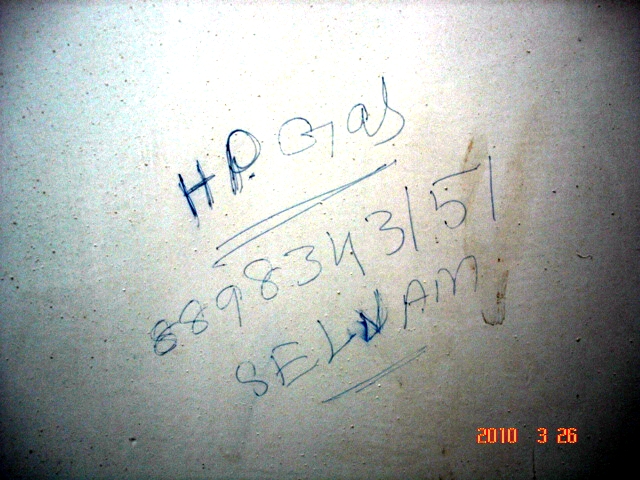 HP. Gas
8898343151
SELVAM
2010 3 26